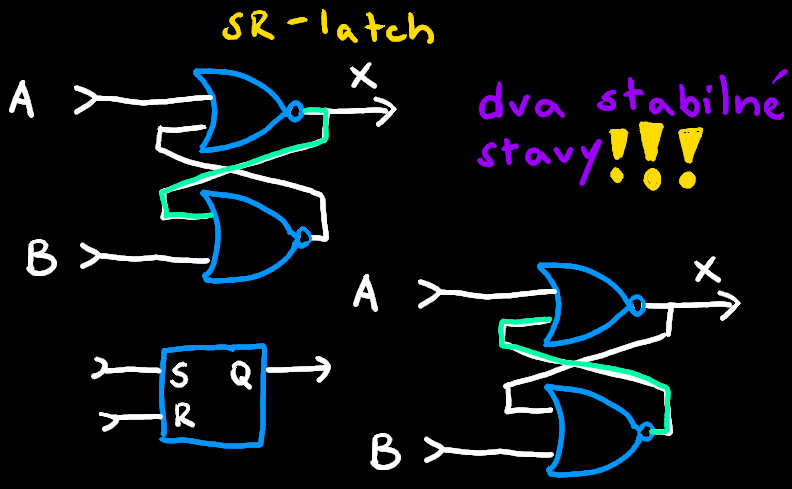 SR-latch
A
X
dva stabilné
stavy!!!
B
A
X
S Q
R
B